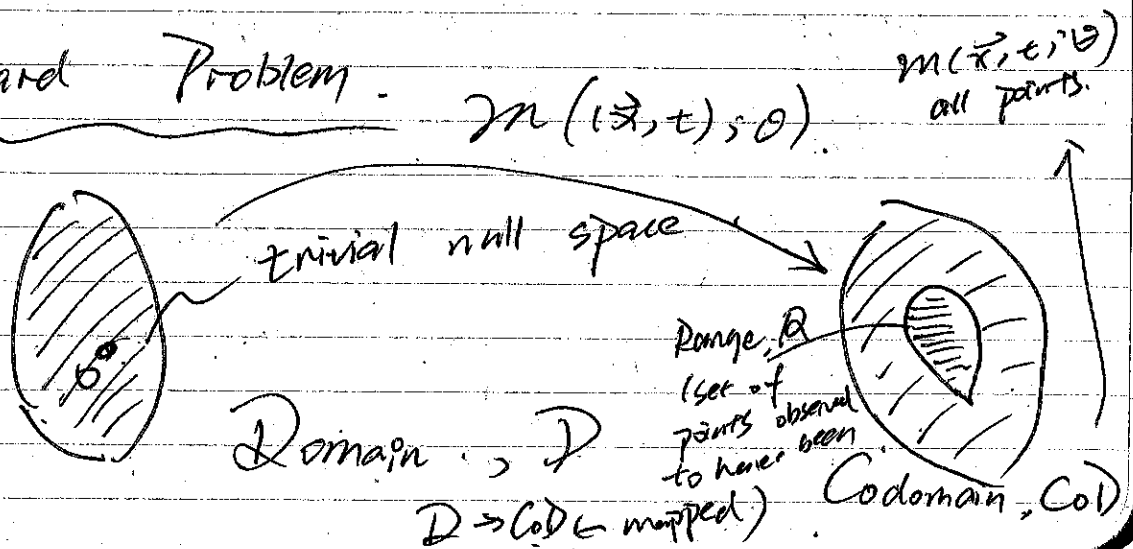 ard Problem.
m((x⃗, t); θ).
m(x⃗, t; θ)
all points.
trivial null space
0
Range, R
(set of
points observed
to have been
mapped)
Domain, D
D → CoD
Codomain, CoD